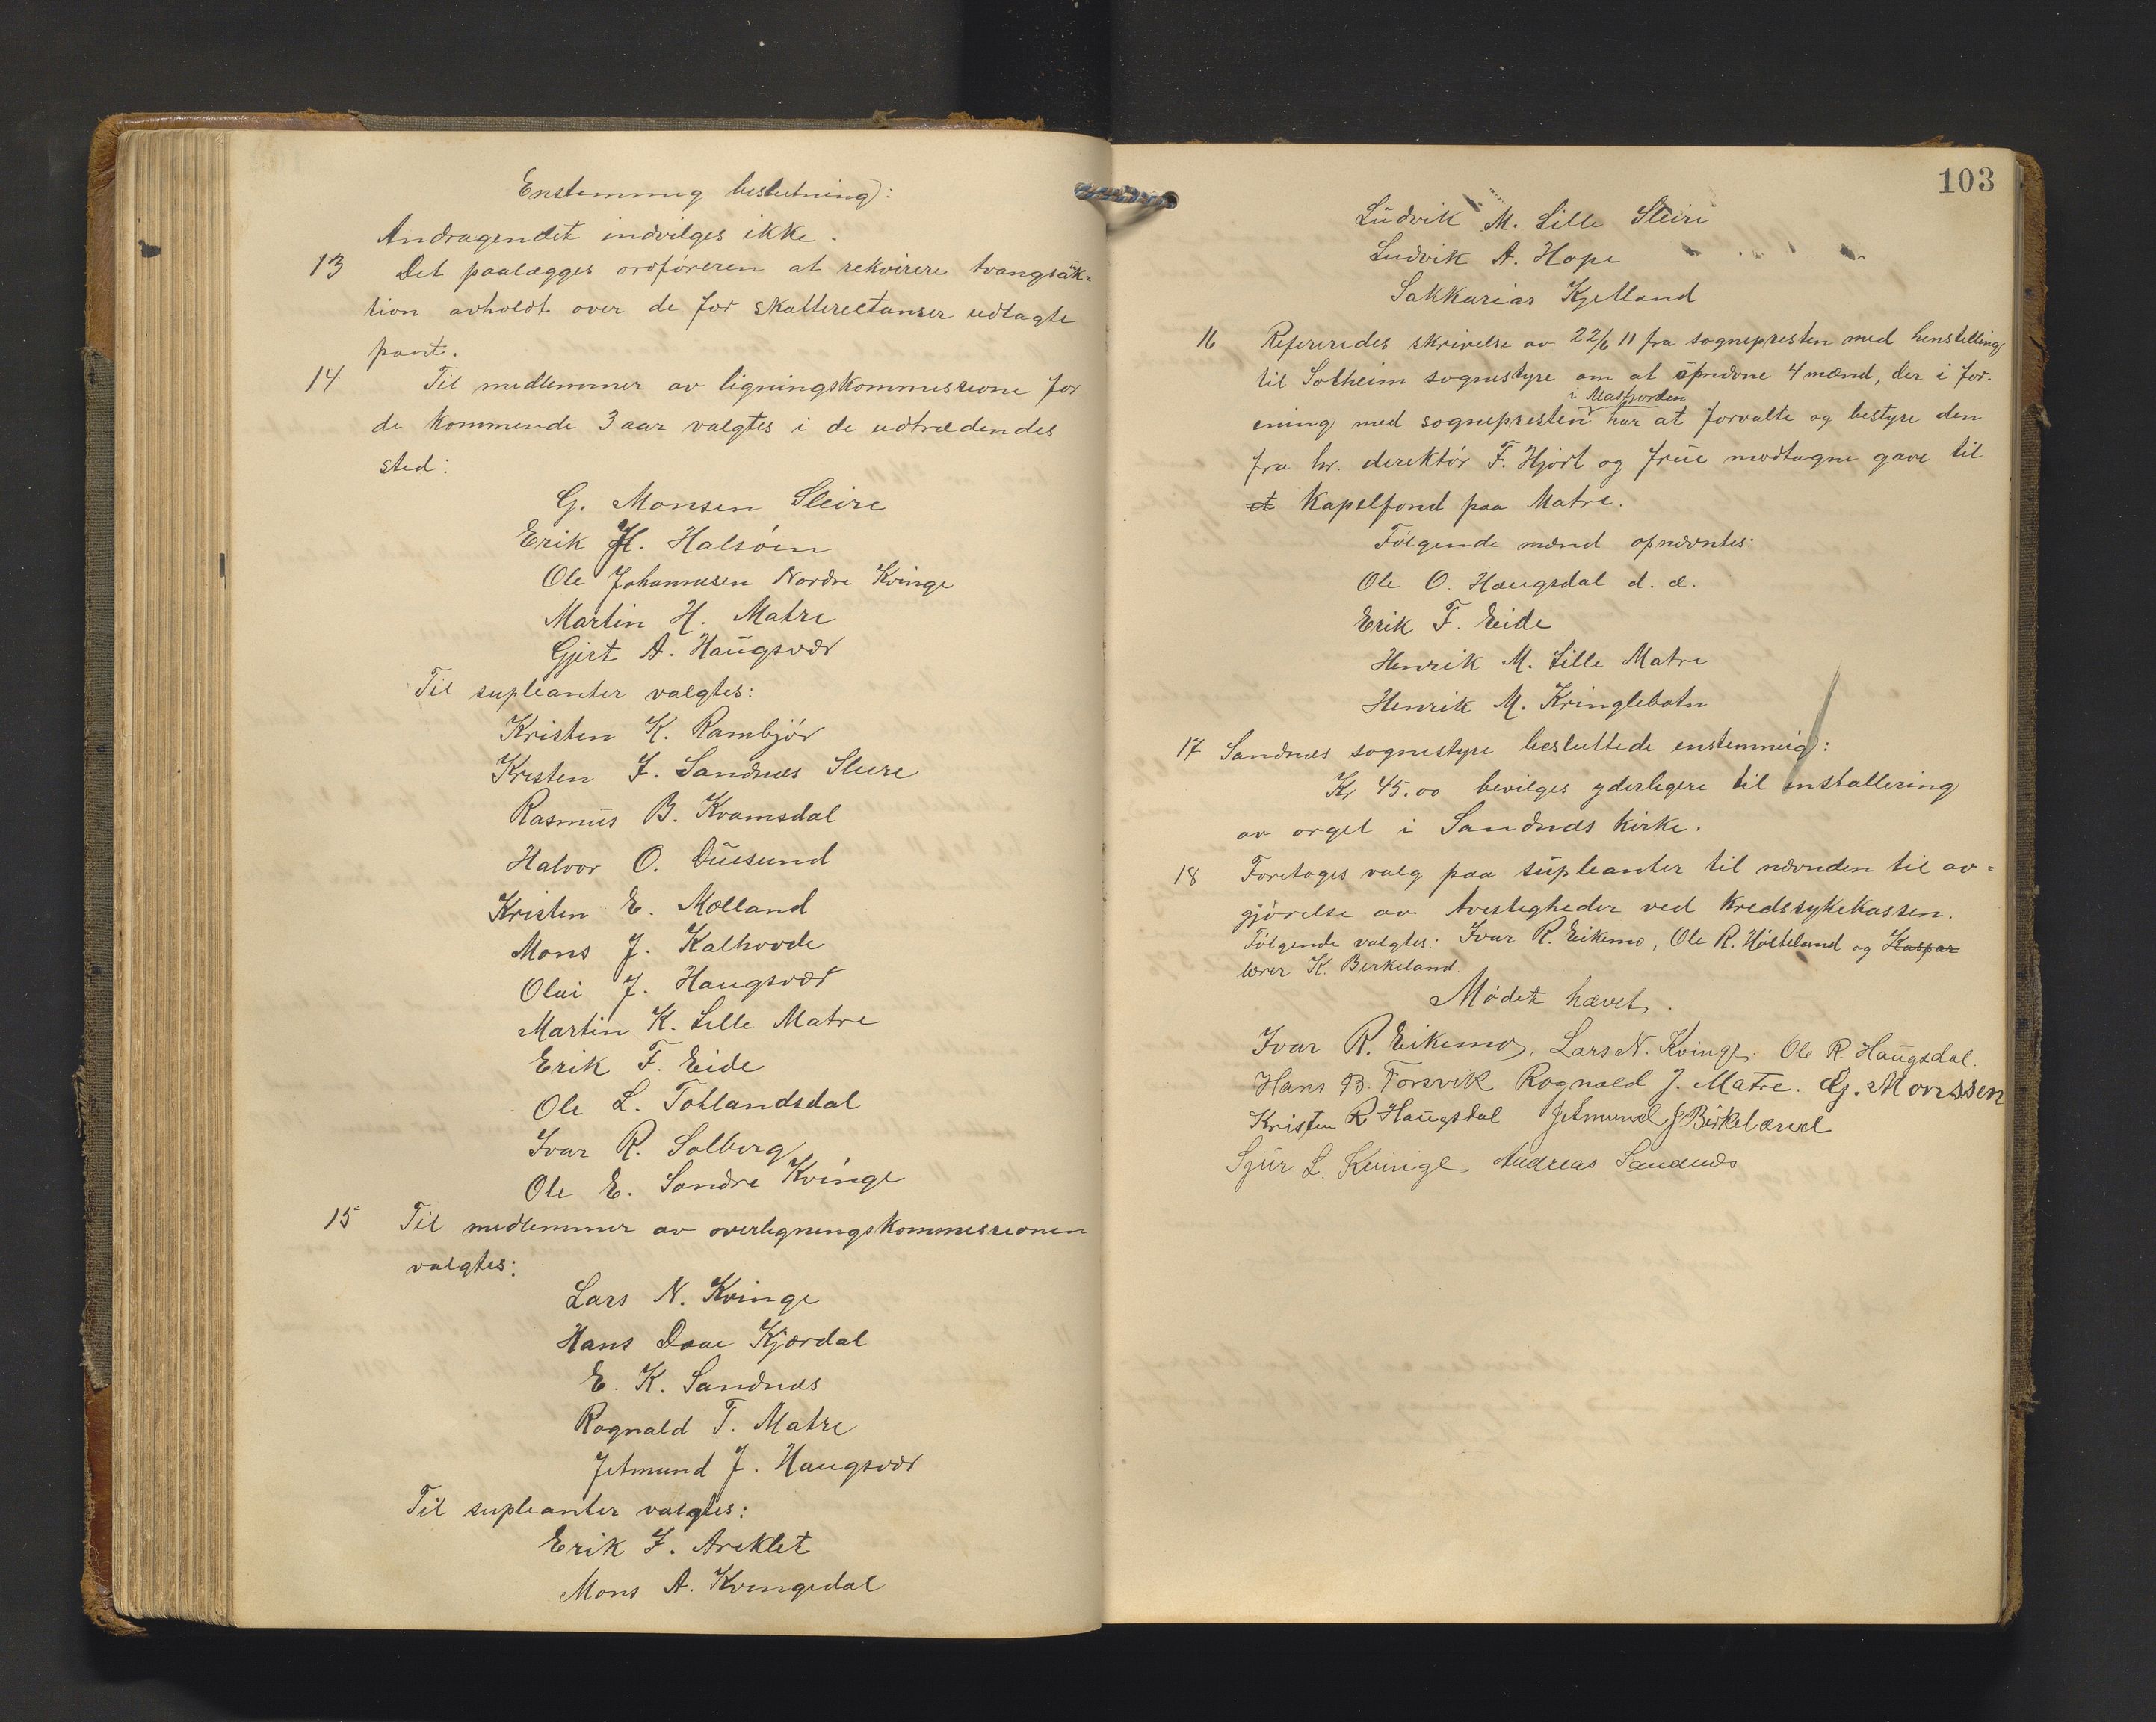 Enstemmig beslutning:
Andragendet indvilges ikke.
13 Det paalægges ordföreren at rekvirere tvangsauk-
tion avholdt over de for skatterestanser udtagte
pant.
14 Til medlemmer av ligningskommissione for
de kommende 3 aar valgtes i de udtrædendes
sted:
G. Monsen Sleire
Erik H. Halsöen
Ole Johannesen Nordre Kvinge
Martin H. Matre
Gjert A. Haugsvær
Til supleanter valgtes:
Kristen K. Rambjör
Kristen J. Sandnes Sleire
Rasmus B. Kvamsdal
Halvor O. Duesund
Kristen E. Molland
Mons J. Kalhovde
Olai J. Haugsvær
Martin K. Lille Matre
Erik F. Eide
Ole L. Totlandsdal
Ivar R. Solberg
Ole E. Söndre Kvinge
15 Til medlemmer av overligningskommissionen
valgtes:
Lars N. Kvinge
Hans Daae Kjærdal
E. K. Sandnes
Rognald T. Matre
Jetmund J. Haugsvær
Til supleanter valgtes:
Erik J. Areklet
Mons A. Kvingedal
103
Ludvik M. Lille Sleire
Ludvik A. Hope
Sakkarias Kjelland
16 Refereredes skrivelse av 22/6 11 fra sognepresten med henstilling
til Solheim sognestyre om at opnævne 4 mænd, der i for-
i Masfjorden
ening med sognepresten har at forvalte og bestyre den
fra hr. direktör F. Hjort og frue modtagne gave til
et Kapelfond paa Matre.
Fölgende mænd opnævntes:
Ole O. Haugsdal d. æ.
Erik F. Eide
Henrik M. Lille Matre
Henrik M. Kringlebotn
17 Sandnes sognestyre besluttede enstemmig:
Kr 45.00 bevilges yderligere til installering
av orgel i Sandnes kirke.
18 Foretoges valg paa supleanter til nævnden til av-
gjörelse av tvistigheder ved Kredssykekassen.
Fölgende valgtes: Ivar R. Eikemo, Ole R. Hösteland og Kaspar
lærer K. Birkeland.
Mödet hævet.
Ivar R. Eikemo, Lars N. Kvinge. Ole R. Haugsdal.
Hans B. Forsvik Rognald J. Matre. G. Monssen
Kristen R Haugsdal Jetmund J Birkeland
Sjur L. Kvinge Andreas Sandnes